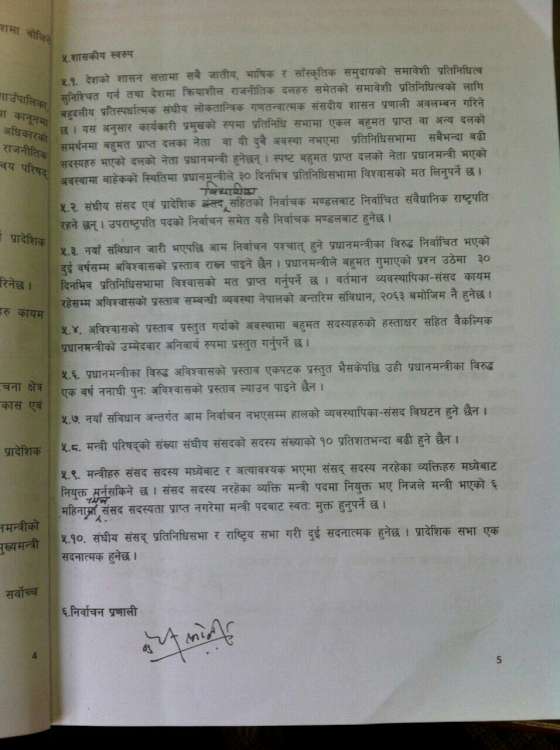 शमा चोखिने
गाउँपालिका,
वा कानूनमा
अधिकारको
राजनीतिक
त्रय परिषद्
प्रादेशिक
गरिनेछ ।
हरु कायम
चना क्षेत्र
कास एवं
प्रादेशिक
नमन्त्रीको
मुख्यमन्त्री
सर्वोच्च
4
५.शासकीय स्वरुप
५.१. देशको शासन सत्तामा सबै जातीय, भाषिक र साँस्कृतिक समुदायको समावेशी प्रतिनिधित्व
सुनिश्चित गर्न तथा देशमा क्रियाशील राजनीतिक दलहरु समेतको समावेशी प्रतिनिधित्वको लागि
बहुदलीय प्रतिस्पर्धात्मक संघीय लोकतान्त्रिक गणतन्त्रात्मक संसदीय शासन प्रणाली अवलम्बन गरिने
छ । यस अनुसार कार्यकारी प्रमुखको रुपमा प्रतिनिधि सभामा एकल बहुमत प्राप्त वा अन्य दलको
समर्थनमा बहुमत प्राप्त दलका नेता वा यी दुबै अवस्था नभएमा प्रतिनिधिसभामा सबैभन्दा बढी
सदस्यहरु भएको दलको नेता प्रधानमन्त्री हुनेछन् । स्पष्ट बहुमत प्राप्त दलको नेता प्रधानमन्त्री भएको
अवस्थामा बाहेकको स्थितिमा प्रधानमन्त्रीले ३० दिनभित्र प्रतिनिधिसभामा विश्वासको मत लिनुपर्ने छ ।
विधायिका
५.२. संघीय संसद एवं प्रादेशिक संसद सहितको निर्वाचक मण्डलबाट निर्वाचित सवैधानिक राष्ट्रपति
रहने छन् । उपराष्ट्रपति पदको निर्वाचन समेत यसै निर्वाचक मण्डलबाट हुनेछ ।
५.३. नयाँ संविधान जारी भएपछि आम निर्वाचन पश्चात् हुने प्रधानमन्त्रीका विरुद्ध निर्वाचित भएको
दुई वर्षसम्म अविश्वासको प्रस्ताव राख्न पाइने छैन । प्रधानमन्त्रीले बहुमत गुमाएको प्रश्न उठेमा ३०
दिनभित्र प्रतिनिधिसभामा विश्वासको मत प्राप्त गर्नुपर्ने छ । वर्तमान व्यवस्थापिका-संसद कायम
रहेसम्म अविश्वासको प्रस्ताव सम्बन्धी व्यवस्था नेपालको अन्तरिम संविधान, २०६३ बमोजिम नै हुनेछ ।
५.४. अविश्वासको प्रस्ताव प्रस्तुत गर्दाको अवस्थामा बहुमत सदस्यहरुको हस्ताक्षर सहित वैकल्पिक
प्रधानमन्त्रीको उम्मेदवार अनिवार्य रुपमा प्रस्तुत गर्नुपर्ने छ ।
५.६. प्रधानमन्त्रीका विरुद्ध अविश्वासको प्रस्ताव एकपटक प्रस्तुत भैसकेपछि उही प्रधानमन्त्रीका विरुद्ध
एक वर्ष ननाघी पुनः अविश्वासको प्रस्ताव ल्याउन पाइने छैन ।
५.७. नयाँ संविधान अन्तर्गत आम निर्वाचन नभएसम्म हालको व्यवस्थापिका-संसद विघटन हुने छैन ।
५.८. मन्त्री परिषद्को संख्या संघीय संसदको सदस्य संख्याको १० प्रतिशतभन्दा बढी हुने छैन ।
५.९. मन्त्रीहरु संसद सदस्य मध्येबाट र अत्यावश्यक भएमा संसद् सदस्य नरहेका व्यक्तिहरु मध्येबाट
नियुक्त गर्नसकिने छ । संसद सदस्य नरहेका व्यक्ति मन्त्री पदमा नियुक्त भए निजले मन्त्री भएको ६
महिनामा संसद सदस्यता प्राप्त नगरेमा मन्त्री पदबाट स्वतः मुक्त हुनुपर्ने छ ।
५.१०. संघीय संसद् प्रतिनिधिसभा र राष्ट्रिय सभा गरी दुई सदनात्मक हुनेछ । प्रादेशिक सभा एक
सदनात्मक हुनेछ ।
६.निर्वाचन प्रणाली
5